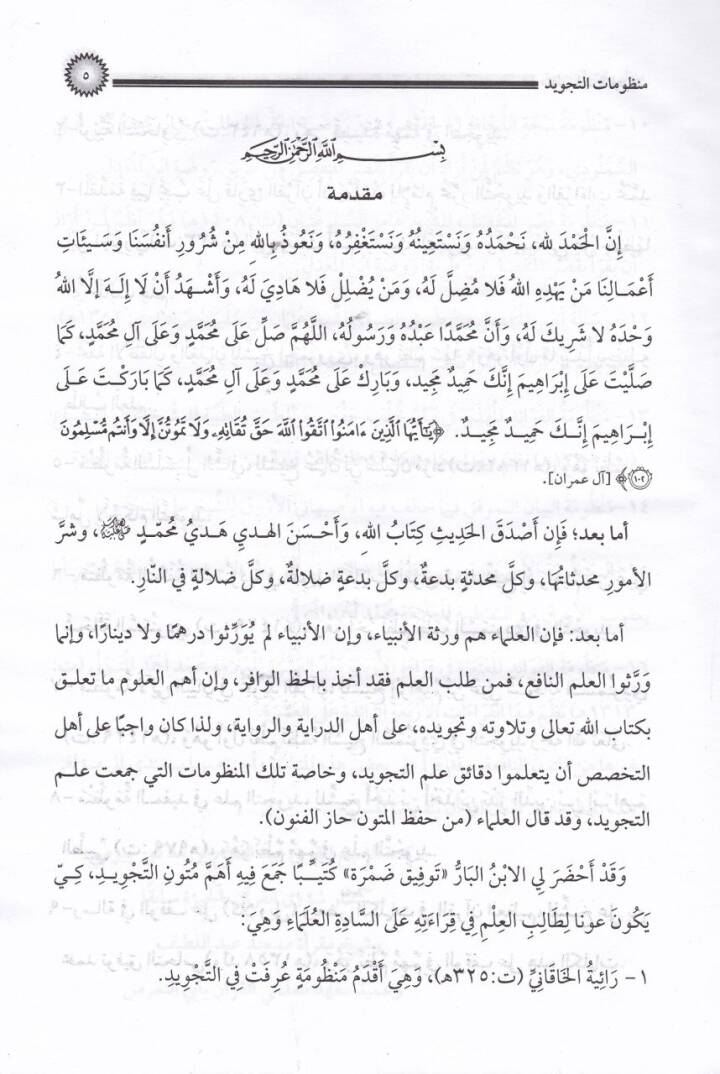 منظومات التجويد
٥
بسم الله الرحمن الرحيم
مقدمة
إِنَّ الْحَمْدَ لله، نَحْمَدُهُ وَنَسْتَعِينُهُ وَنَسْتَغْفِرُهُ، وَنَعُوذُ بِالله مِنْ شُرُورِ أَنْفُسَنَا وَسَيِّئَاتِ
أَعْمَالِنَا مَنْ يَهْدِهِ اللهُ فَلا مُضِلَّ لَهُ، وَمَنْ يُضْلِلْ فَلا هَادِيَ لَهُ، وَأَشْهَدُ أَنْ لَا إِلَهَ إِلَّا اللهُ
وَحْدَهُ لا شَرِيكَ لَهُ، وَأَنَّ مُحَمَّدًا عَبْدُهُ وَرَسُولُهُ، اللَّهُمَّ صَلِّ عَلَى مُحَمَّدٍ وَعَلَى آلِ مُحَمَّدٍ، كَمَا
صَلَّيْتَ عَلَى إِبْرَاهِيمَ إِنَّكَ حَمِيدٌ مَجِيد، وَبَارِكْ عَلَى مُحَمَّدٍ وَعَلَى آلِ مُحَمَّدٍ، كَمَا بَارَكْتَ عَلَى
إِبْرَاهِيمَ إِنَّكَ حَمِيدٌ مَجِيدٌ. ﴿يَٰٓأَيُّهَا ٱلَّذِينَ ءَامَنُوا۟ ٱتَّقُوا۟ ٱللَّهَ حَقَّ تُقَاتِهِۦ وَلَا تَمُوتُنَّ إِلَّا وَأَنتُم مُّسْلِمُونَ
١٠٢﴾ [آل عمران].
أما بعد؛ فَإِن أَصْدَقَ الحَدِيثِ كِتَابُ اللهِ، وَأَحْسَنَ الهديِ هَديُ مُحَمّدٍ ﷺ، وشرَّ
الأمورِ محدثاتُهَا، وكلَّ محدثةٍ بدعةٌ، وكلَّ بدعةٍ ضلالةٌ، وكلَّ ضلالةٍ في النّارِ.
أما بعد: فإن العلماء هم ورثة الأنبياء، وإن الأنبياء لم يُوَرِّثوا درهمًا ولا دينارًا، وإنما
وَرَّثوا العلم النافع، فمن طلب العلم فقد أخذ بالحظ الوافر، وإن أهم العلوم ما تعلق
بكتاب الله تعالى وتلاوته وتجويده، على أهل الدراية والرواية، ولذا كان واجبًا على أهل
التخصص أن يتعلموا دقائق علم التجويد، وخاصة تلك المنظومات التي جمعت علم
التجويد، وقد قال العلماء (من حفظ المتون حاز الفنون).
وَقَدْ أَحْضَرَ لي الابْنُ البَارُّ «تَوفِيق ضَمْرَة» كُتَيِّبًا جَمَعَ فِيهِ أَهَمَّ مُتُونِ التَّجْوِيدِ، كَيّ
يَكُونَ عَونًا لِطَالِبِ العِلْمِ فِي قِرَاءَتِهِ عَلَى السَّادَةِ العُلَمَاءِ وَهِيَ:
١- رَائِيةُ الخَاقَانِيِّ (ت:٣٢٥ه)، وَهِيَ أَقْدَمُ مَنْظُومَةٍ عُرِفَتْ فِي التَّجْوِيدِ.